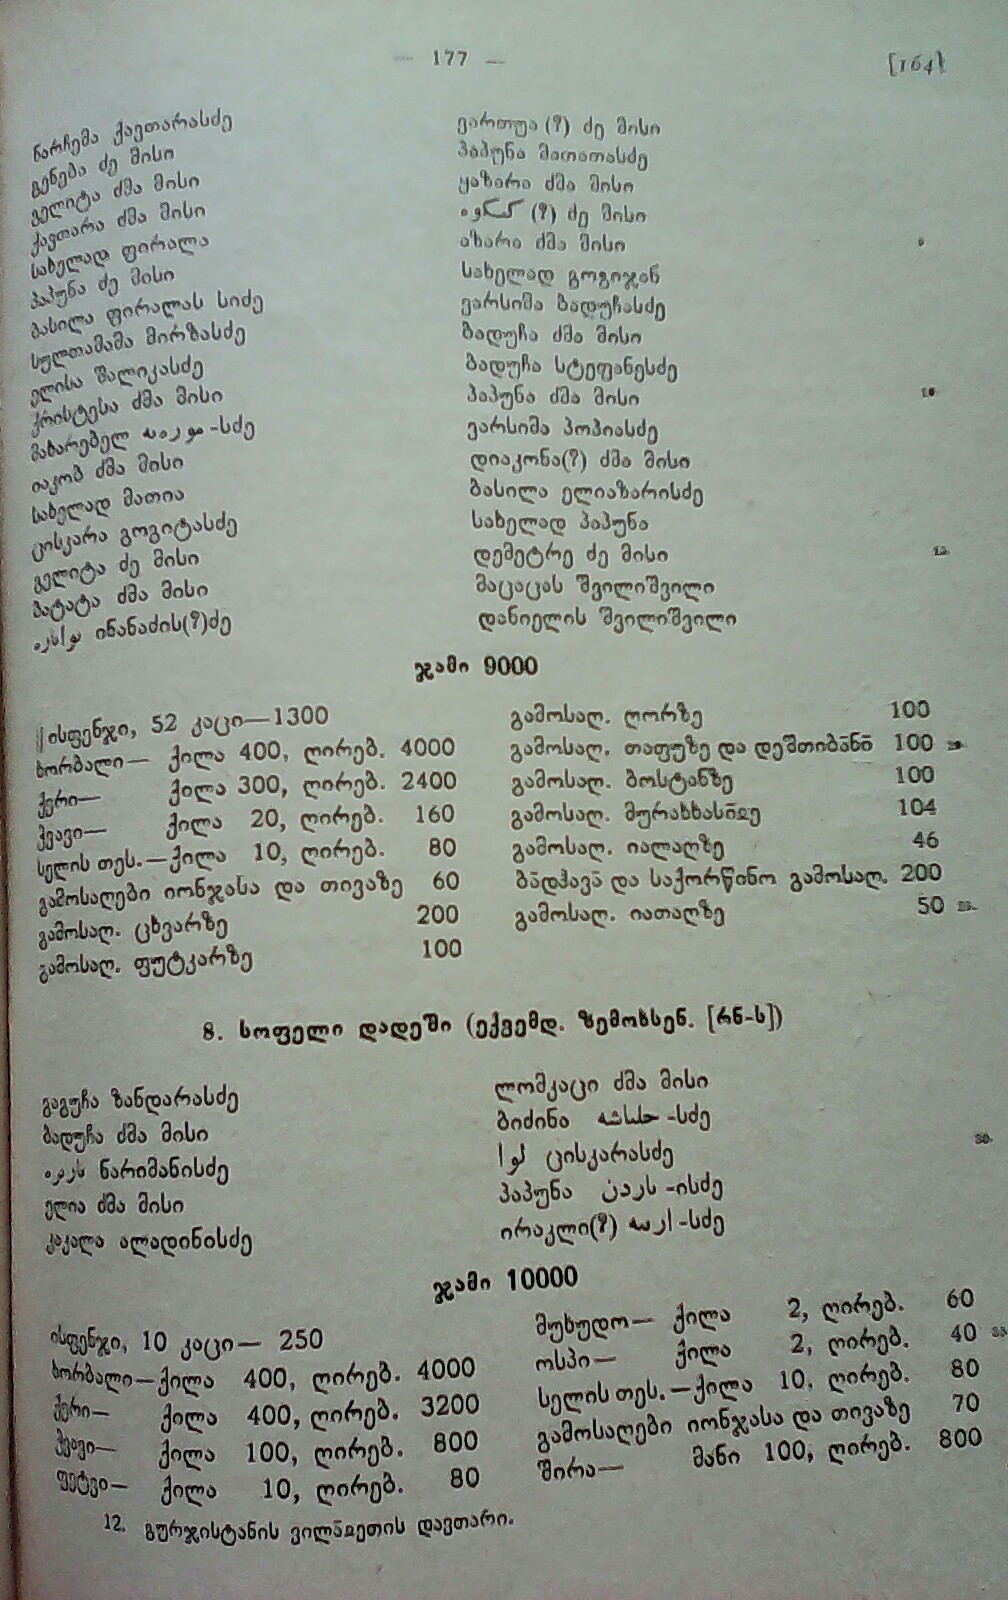 — 177 —
[164]
ნარჩემა ქავთარასძე
გენება ძე მისი
გელიტა ძმა მისი
ქავთარა ძმა მისი
სახელად ფირალა
პაპუნა ძე მისი
ბასილა ფირალას სიძე
სულთამამა მირზასძე
ელისა შალიკასძე
ქრისტესა ძმა მისი
მახარებელ -სძე
იაკობ ძმა მისი
სახელად მათია
ცისკარა გოგიტასძე
გელიტა ძე მისი
პატატა ძმა მისი
ინანაძის(?)ძე
ვართუა (?) ძე მისი
პაპუნა მათათასძე
ყაზარა ძმა მისი
(?) ძე მისი
აზარა ძმა მისი
სახელად გოგიჯან
ვარსიმა ბადუჩასძე
ბადუჩა ძმა მისი
ბადუჩა სტეფანესძე
პაპუნა ძმა მისი
10
ვარსიმა პოპიასძე
დიაკონა(?) ძმა მისი
ბასილა ელიაზარისძე
სახელად პაპუნა
დემეტრე ძე მისი
მაცაცას შვილიშვილი
დანიელის შვილიშვილი
ჯამი 9000
ისფენჯი, 52 კაცი—1300
ხორბალი— ქილა 400, ღირებ. 4000
ქერი— ქილა 300, ღირებ. 2400
ჭვავი— ქილა 20, ღირებ. 160
სელის თეს.—ქილა 10, ღირებ. 80
გამოსაღები იონჯასა და თივაზე 60
გამოსაღ. ცხვარზე 200
გამოსაღ. ფუტკარზე 100
გამოსაღ. ღორზე 100
გამოსაღ. თაფუზე და დეშთიბანი 100
გამოსაღ. ბოსტანზე 100
გამოსაღ. 104
გამოსაღ. იალაღზე 46
ბადჰავა და საქორწინო გამოსაღ. 200
გამოსაღ. იათაღზე 50
8. სოფელი დადეში (ექვემდ. ზემოხსენ. [რნ-ს])
გაგუჩა ზანდარასძე
ბადუჩა ძმა მისი
ნარიმანისძე
ელია ძმა მისი
კაკალა ალადინისძე
ლომკაცი ძმა მისი
ბიძინა -სძე
لوا ცისკარასძე
პაპუნა -ისძე
ირაკლი(?) -სძე
ჯამი 10000
ისფენჯი, 10 კაცი— 250
ხორბალი—ქილა 400, ღირებ. 4000
ქერი— ქილა 400, ღირებ. 3200
ჭვავი— ქილა 100, ღირებ. 800
ფეტვი— ქილა 10, ღირებ. 80
მუხუდო— ქილა 2, ღირებ. 60
ოსპი— ქილა 2, ღირებ. 40
სელის თეს.—ქილა 10, ღირებ. 80
გამოსაღები იონჯასა და თივაზე 70
შირა— მანი 100, ღირებ. 800
12. გურჯისტანის ვილაეთის დავთარი.